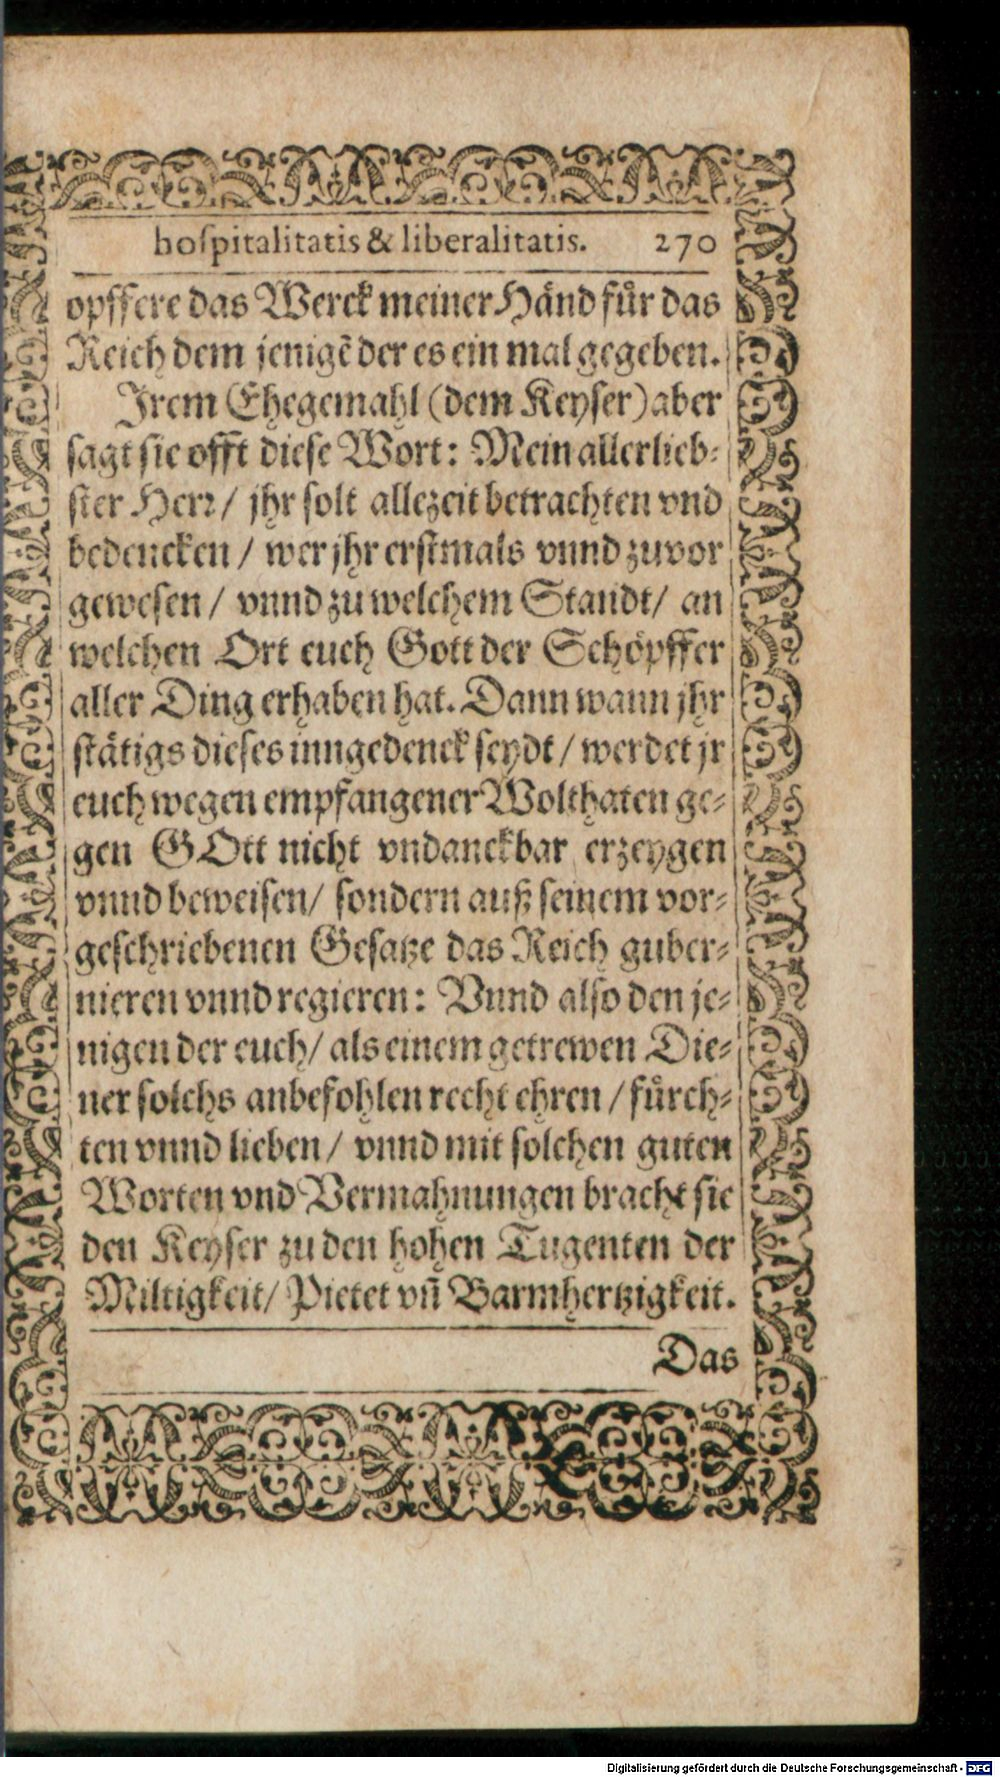 hospitalitatis & liberalitatis. 270
opffere das Werck meiner Händ für das
Reich dem jenigẽ der es ein mal gegeben.
Irem Ehegemahl (dem Keyser) aber
sagt sie offt diese Wort: Mein allerlieb-
ster Herr / jhr solt allezeit betrachten vnd
bedencken / wer jhr erstmals vnnd zuvor
gewesen / vnnd zu welchem Standt / an
welchen Ort euch Gott der Schöpffer
aller Ding erhaben hat. Dann wann jhr
stätigs dieses inngedenck seydt / werdet jr
euch wegen empfangener Wolthaten ge-
gen GOtt nicht vndanckbar erzeygen
vnnd beweisen / sondern auß seinem vor-
geschriebenen Gesatze das Reich guber-
nieren vnnd regieren: Vnnd also den je-
nigen der euch / als einem getrewen Die-
ner solchs anbefohlen recht ehren / fürch-
ten vnnd lieben / vnnd mit solchen guten
Worten vnd Vermahnungen bracht sie
den Keyser zu den hohen Tugenten der
Miltigkeit / Pietet vñ Barmhertzigkeit.
Das
Digitalisierung gefördert durch die Deutsche Forschungsgemeinschaft - DFG